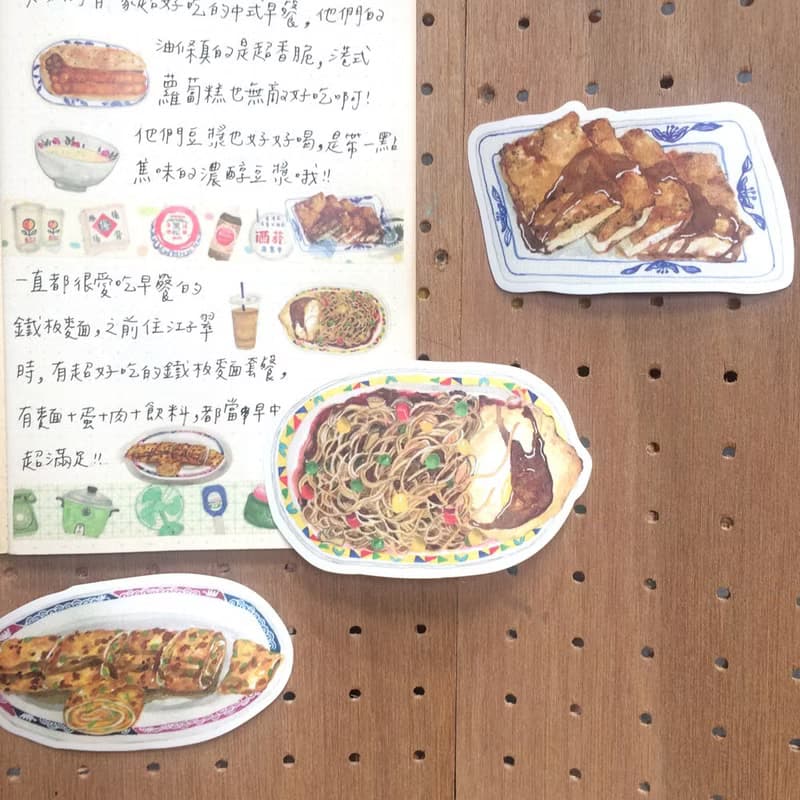 家超好吃的中式早餐,他們的
油條真的是超香脆,港式
蘿蔔糕也無敵好吃啊!
他們豆漿也好好喝,是帶一點
焦味的濃醇豆漿哦!!
一直都很愛吃早餐的
鐵板麵,之前住江子翠
時,有超好吃的鐵板麵套餐,
有麵+蛋+肉+飲料,都當早中
超滿足!!